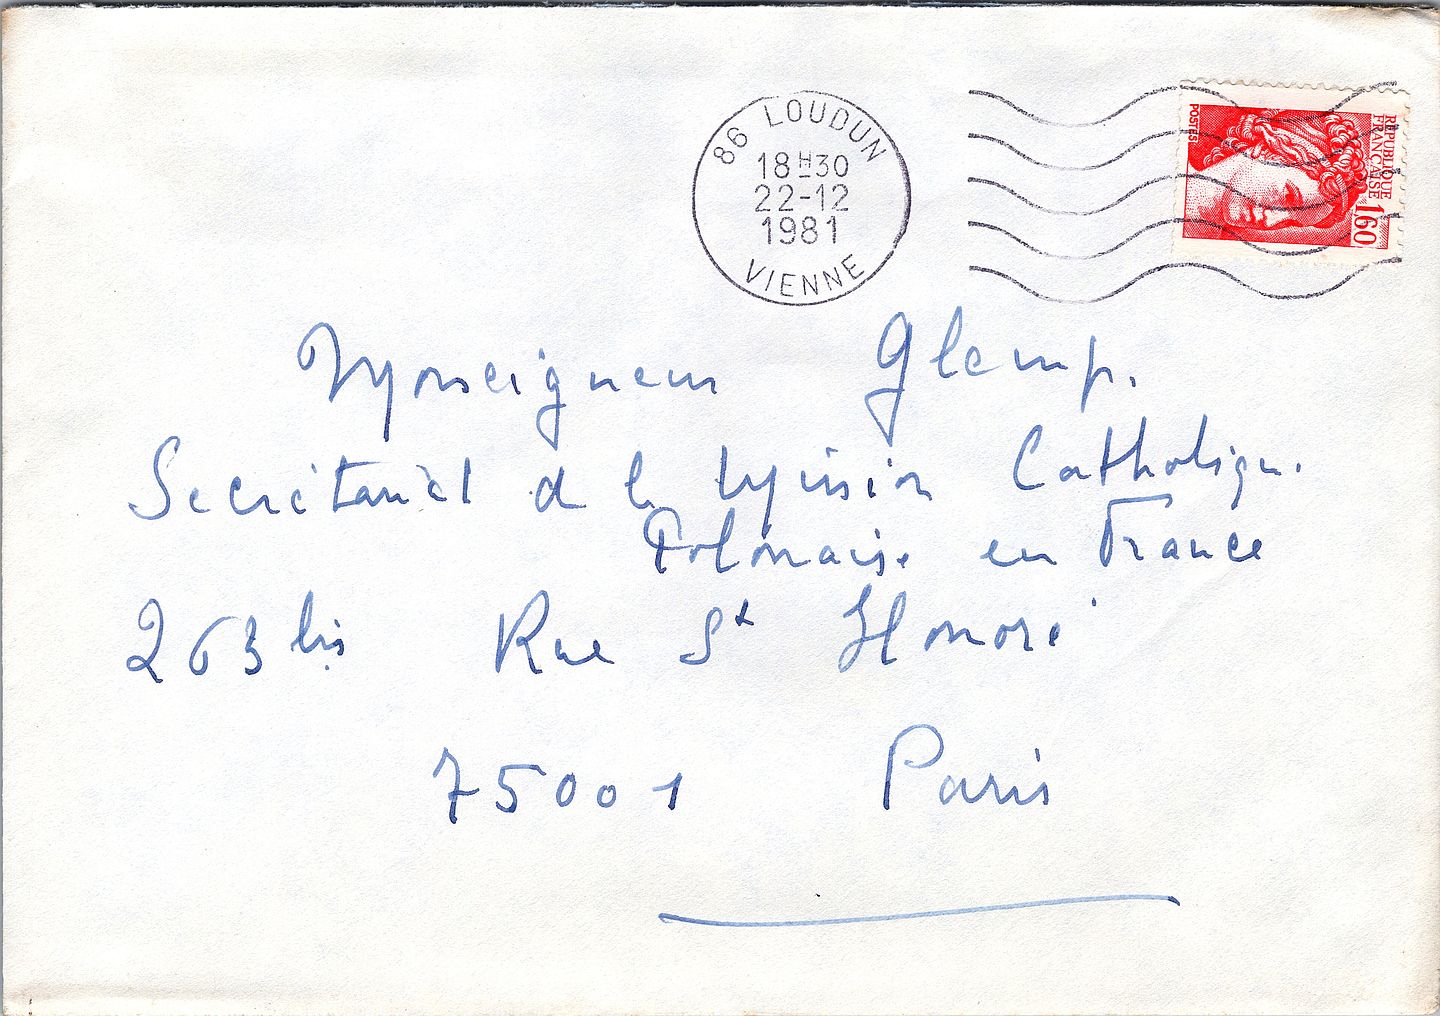 86 LOUDUN
18H30
22-12
1981
VIENNE
POSTES
REPUBLIQUE
FRANÇAISE
1,60
Monseigneur Glemp.
Secrétariat de la Mission Catholique
Polonaise en France
263 bis Rue St Honoré
75001 Paris